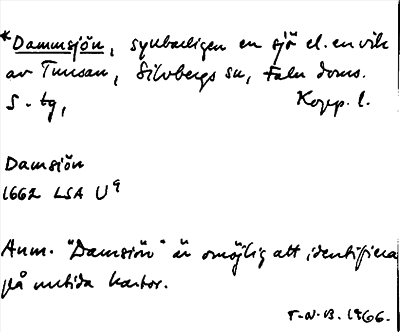 *Dammsjön, synbarligen en sjö el. en vik
av Tunsan, Silvbergs sn, Falu doms.
s. tg, Kopp. l.
Damsiön
1662 LSA U⁹
Anm. "Damsiön" är omöjlig att identifiera
på nutida kartor.
T-N-B. 1966.